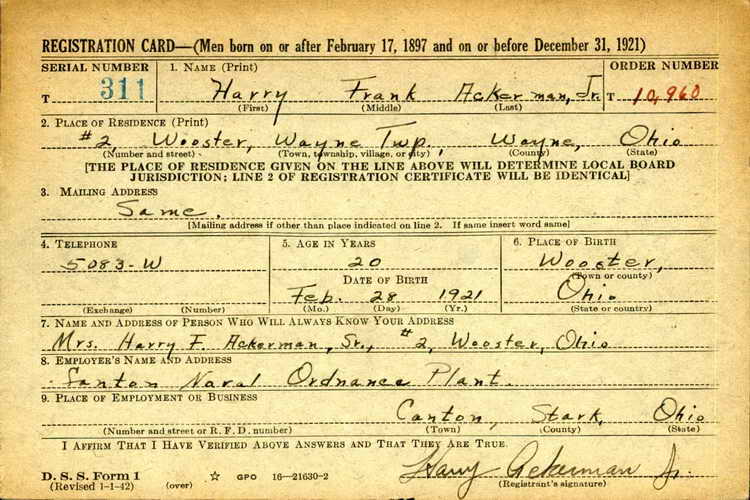 REGISTRATION CARD—(Men born on or after February 17, 1897 and on or before December 31, 1921)
SERIAL NUMBER 1. NAME (Print) ORDER NUMBER
T 311 Harry Frank Ackerman, Jr. T 10,960
(First) (Middle) (Last)
2. PLACE OF RESIDENCE (Print)
#2, Wooster, Wayne Twp., Wayne, Ohio
(Number and street) (Town, township, village, or city) (County) (State)
[THE PLACE OF RESIDENCE GIVEN ON THE LINE ABOVE WILL DETERMINE LOCAL BOARD
JURISDICTION; LINE 2 OF REGISTRATION CERTIFICATE WILL BE IDENTICAL]
3. MAILING ADDRESS
Same.
[Mailing address if other than place indicated on line 2. If same insert word same]
4. TELEPHONE 5. AGE IN YEARS 6. PLACE OF BIRTH
5083-W 20 Wooster,
(Town or county)
DATE OF BIRTH
Feb. 28 1921 Ohio
(Exchange) (Number) (Mo.) (Day) (Yr.) (State or country)
7. NAME AND ADDRESS OF PERSON WHO WILL ALWAYS KNOW YOUR ADDRESS
Mrs. Harry F. Ackerman, Sr., #2, Wooster, Ohio
8. EMPLOYER'S NAME AND ADDRESS
Canton Naval Ordnance Plant.
9. PLACE OF EMPLOYMENT OR BUSINESS
Canton, Stark, Ohio
(Number and street or R. F. D. number) (Town) (County) (State)
I AFFIRM THAT I HAVE VERIFIED ABOVE ANSWERS AND THAT THEY ARE TRUE.
Harry Ackerman Jr.
D. S. S. Form 1 GPO 16—21630-2 (Registrant's signature)
(Revised 1-1-42) (over)